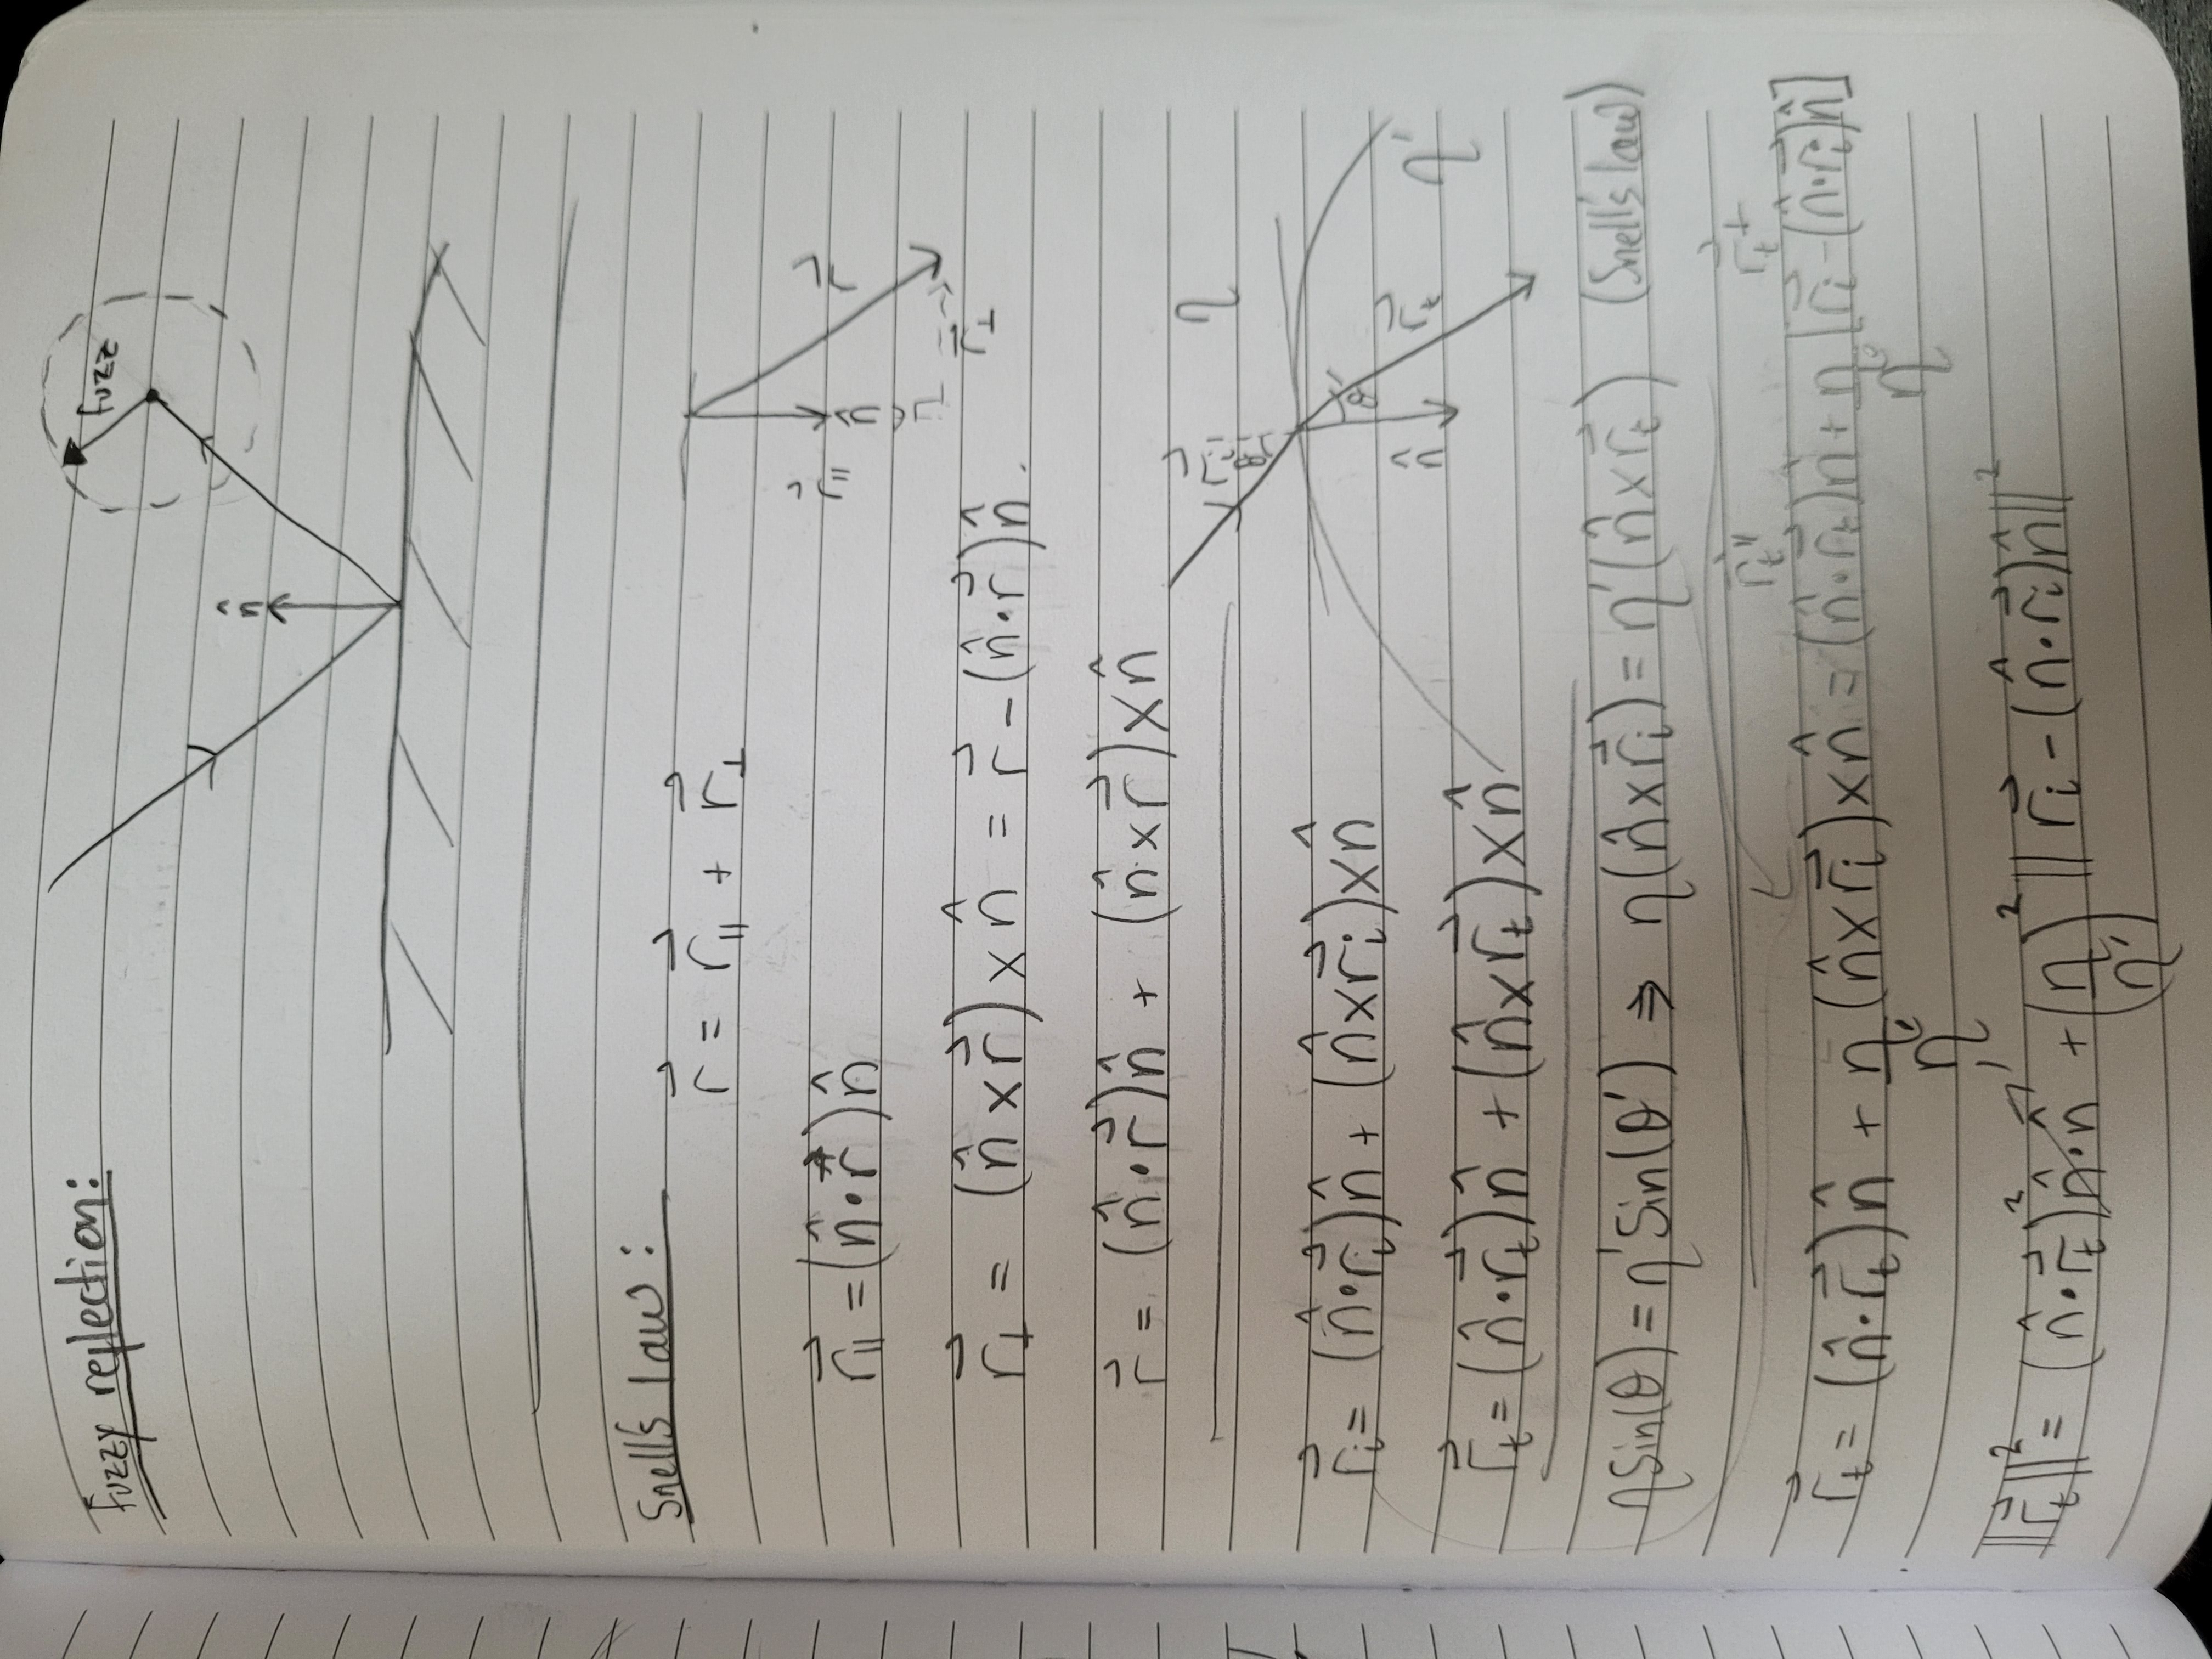 Fuzzy reflection:
fuzz
n̂
Snell's law:
r⃗ = r⃗∥ + r⃗⊥
r⃗∥ = (n̂•r⃗)n̂
r⃗∥
n̂
r⃗
r⃗⊥
r⃗⊥ = (n̂×r⃗)×n̂ = r⃗-(n̂•r⃗)n̂.
r⃗ = (n̂•r⃗)n̂ + (n̂×r⃗)×n̂
r⃗i
θ
η
r⃗i = (n̂•r⃗i)n̂ + (n̂×r⃗i)×n̂
θ'
n̂
r⃗t
η'
r⃗t = (n̂•r⃗t)n̂ + (n̂×r⃗t)×n̂
ηSin(θ) = η'Sin(θ') ⇒ η(n̂×r⃗i) = η'(n̂×r⃗t) (Snell's law)
r⃗t∥ r⃗t⊥
r⃗t = (n̂•r⃗t)n̂ + η/η' (n̂×r⃗i)×n̂ = (n̂•r⃗t)n̂ + η/η' [r⃗i-(n̂•r⃗i)n̂]
1
‖r⃗t‖² = (n̂•r⃗t)² n̂•n̂ + (η/η')² ‖r⃗i-(n̂•r⃗i)n̂‖²